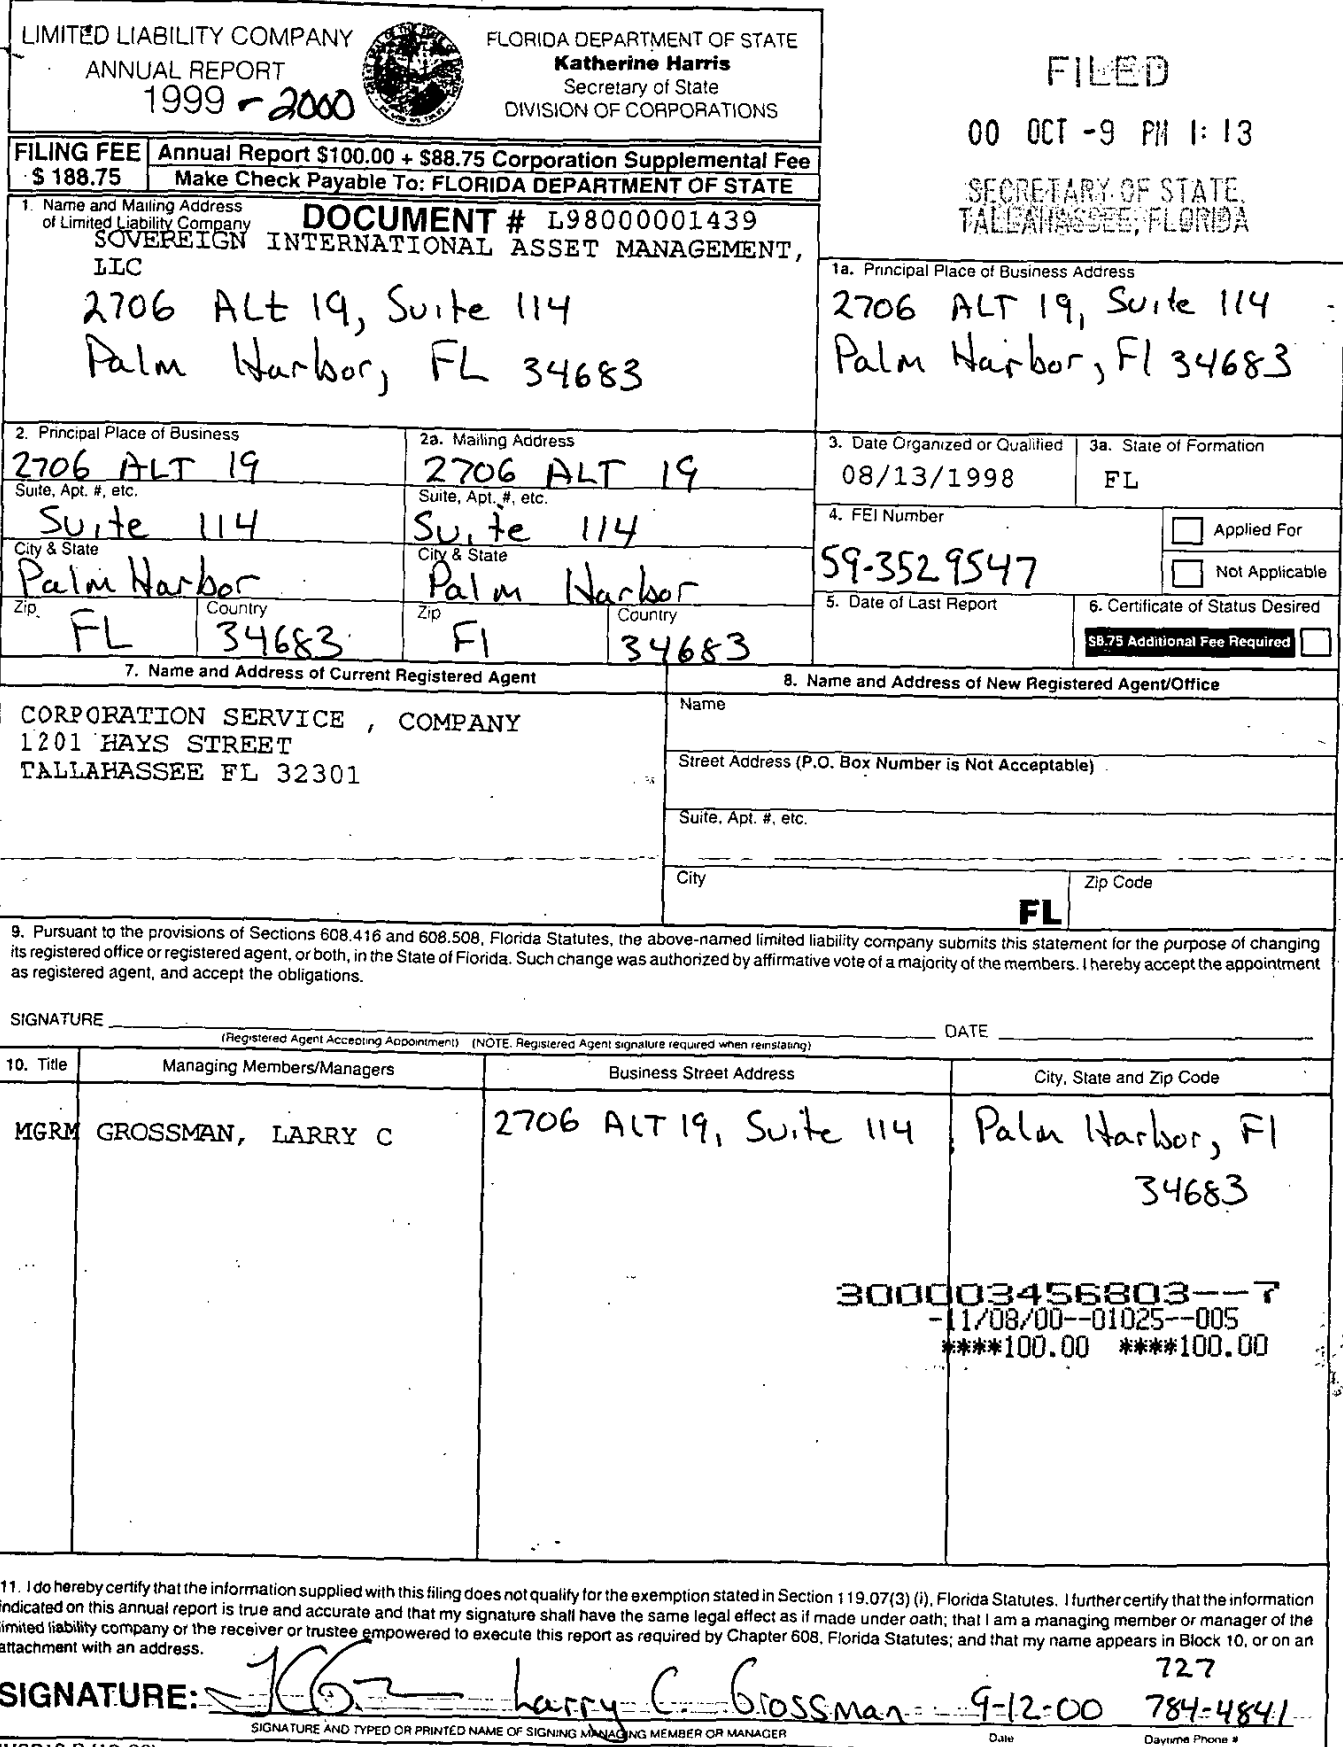 LIMITED LIABILITY COMPANY
ANNUAL REPORT
1999 - 2000
FLORIDA DEPARTMENT OF STATE
Katherine Harris
Secretary of State
DIVISION OF CORPORATIONS
FILED
00 OCT -9 PM 1:13
SECRETARY OF STATE
TALLAHASSEE, FLORIDA
FILING FEE
$ 188.75
Annual Report $100.00 + $88.75 Corporation Supplemental Fee
Make Check Payable To: FLORIDA DEPARTMENT OF STATE
1. Name and Mailing Address
of Limited Liability Company
DOCUMENT # L98000001439
SOVEREIGN INTERNATIONAL ASSET MANAGEMENT,
LLC
2706 Alt 19, Suite 114
Palm Harbor, FL 34683
1a. Principal Place of Business Address
2706 ALT 19, Suite 114
Palm Harbor, Fl 34683
2. Principal Place of Business
2706 ALT 19
Suite, Apt. #, etc.
Suite 114
City & State
Palm Harbor
Zip
FL
Country
34683
2a. Mailing Address
2706 ALT 19
Suite, Apt. #, etc.
Suite 114
City & State
Palm Harbor
Zip
Fl
Country
34683
3. Date Organized or Qualified
08/13/1998
3a. State of Formation
FL
4. FEI Number
59-3529547
Applied For
Not Applicable
5. Date of Last Report
6. Certificate of Status Desired
$8.75 Additional Fee Required
7. Name and Address of Current Registered Agent
CORPORATION SERVICE , COMPANY
1201 HAYS STREET
TALLAHASSEE FL 32301
8. Name and Address of New Registered Agent/Office
Name
Street Address (P.O. Box Number is Not Acceptable)
Suite, Apt. #, etc.
City
FL
Zip Code
9. Pursuant to the provisions of Sections 608.416 and 608.508, Florida Statutes, the above-named limited liability company submits this statement for the purpose of changing
its registered office or registered agent, or both, in the State of Florida. Such change was authorized by affirmative vote of a majority of the members. I hereby accept the appointment
as registered agent, and accept the obligations.
SIGNATURE
DATE
(Registered Agent Accepting Appointment) (NOTE. Registered Agent signature required when reinstating)
10. Title
Managing Members/Managers
Business Street Address
City, State and Zip Code
MGRM GROSSMAN, LARRY C
2706 ALT 19, Suite 114
Palm Harbor, Fl
34683
300003456803--7
-11/08/00--01025--005
****100.00 ****100.00
11. I do hereby certify that the information supplied with this filing does not qualify for the exemption stated in Section 119.07(3) (i), Florida Statutes. I further certify that the information
indicated on this annual report is true and accurate and that my signature shall have the same legal effect as if made under oath; that I am a managing member or manager of the
limited liability company or the receiver or trustee empowered to execute this report as required by Chapter 608, Florida Statutes; and that my name appears in Block 10, or on an
attachment with an address.
SIGNATURE:
Larry C. Grossman
9-12-00
727
784-4841
SIGNATURE AND TYPED OR PRINTED NAME OF SIGNING MANAGING MEMBER OR MANAGER
Date
Daytime Phone #